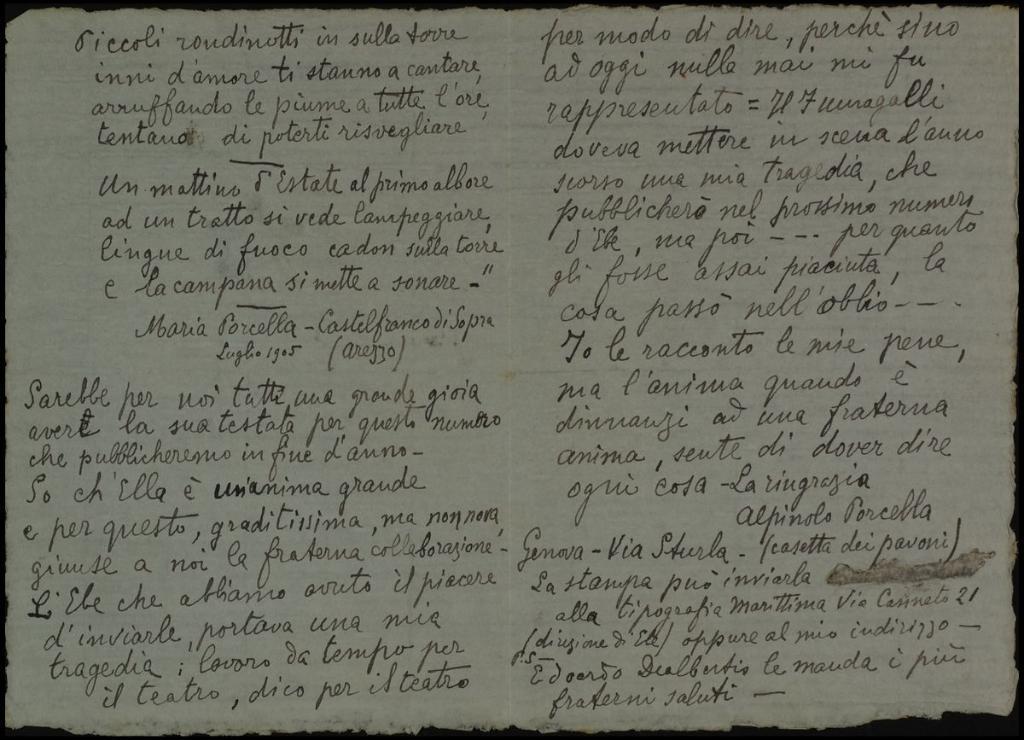 Piccoli rondinotti in sulla torre
inni d'amore ti stanno a cantare,
arruffando le piume a tutte l'ore,
tentano di poterti risvegliare
Un mattino d'Estate al primo albore
ad un tratto si vede lampeggiare,
lingue di fuoco cadon sulla torre
e la campana si mette a sonare - "
Maria Porcella - Castelfranco di Sopra
Luglio 1905 (Arezzo)
Sarebbe per noi tutti una grande gioia
avere la sua testata per questo numero
che pubblicheremo in fine d'anno -
So ch'Ella è un'anima grande
e per questo, graditissima, ma non nova,
giunse a noi la fraterna collaborazione -
L'Ebe che abbiamo avuto il piacere
d'inviarle, portava una mia
tragedia; lavoro da tempo per
il teatro, dico per il teatro
per modo di dire, perchè sino
ad oggi nulla mai mi fu
rappresentato = Il Fumagalli
doveva mettere in scena l'anno
scorso una mia tragedia, che
pubblicherò nel prossimo numero
d'Ebe, ma poi - - - per quanto
gli fosse assai piaciuta, la
cosa passò nell'oblio - - .
Io le racconto le mie pene,
ma l'anima quando è
dinnanzi ad una fraterna
anima, sente di dover dire
ogni cosa - La ringrazia
Alpinolo Porcella
Genova - Via Sturla - (casetta dei pavoni)
La stampa può inviarla
alla tipografia Marittima Via Canneto 21
(direzione d'Ebe) oppure al mio indirizzo -
P.S. - Edoardo Dealbertis le manda i più
fraterni saluti -